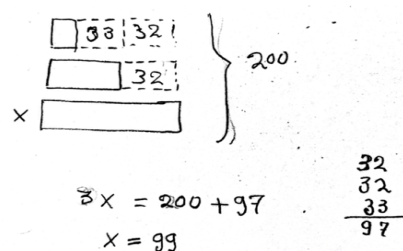 33 32
32
200
x
3x = 200 + 97
x = 99
32
32
33
97